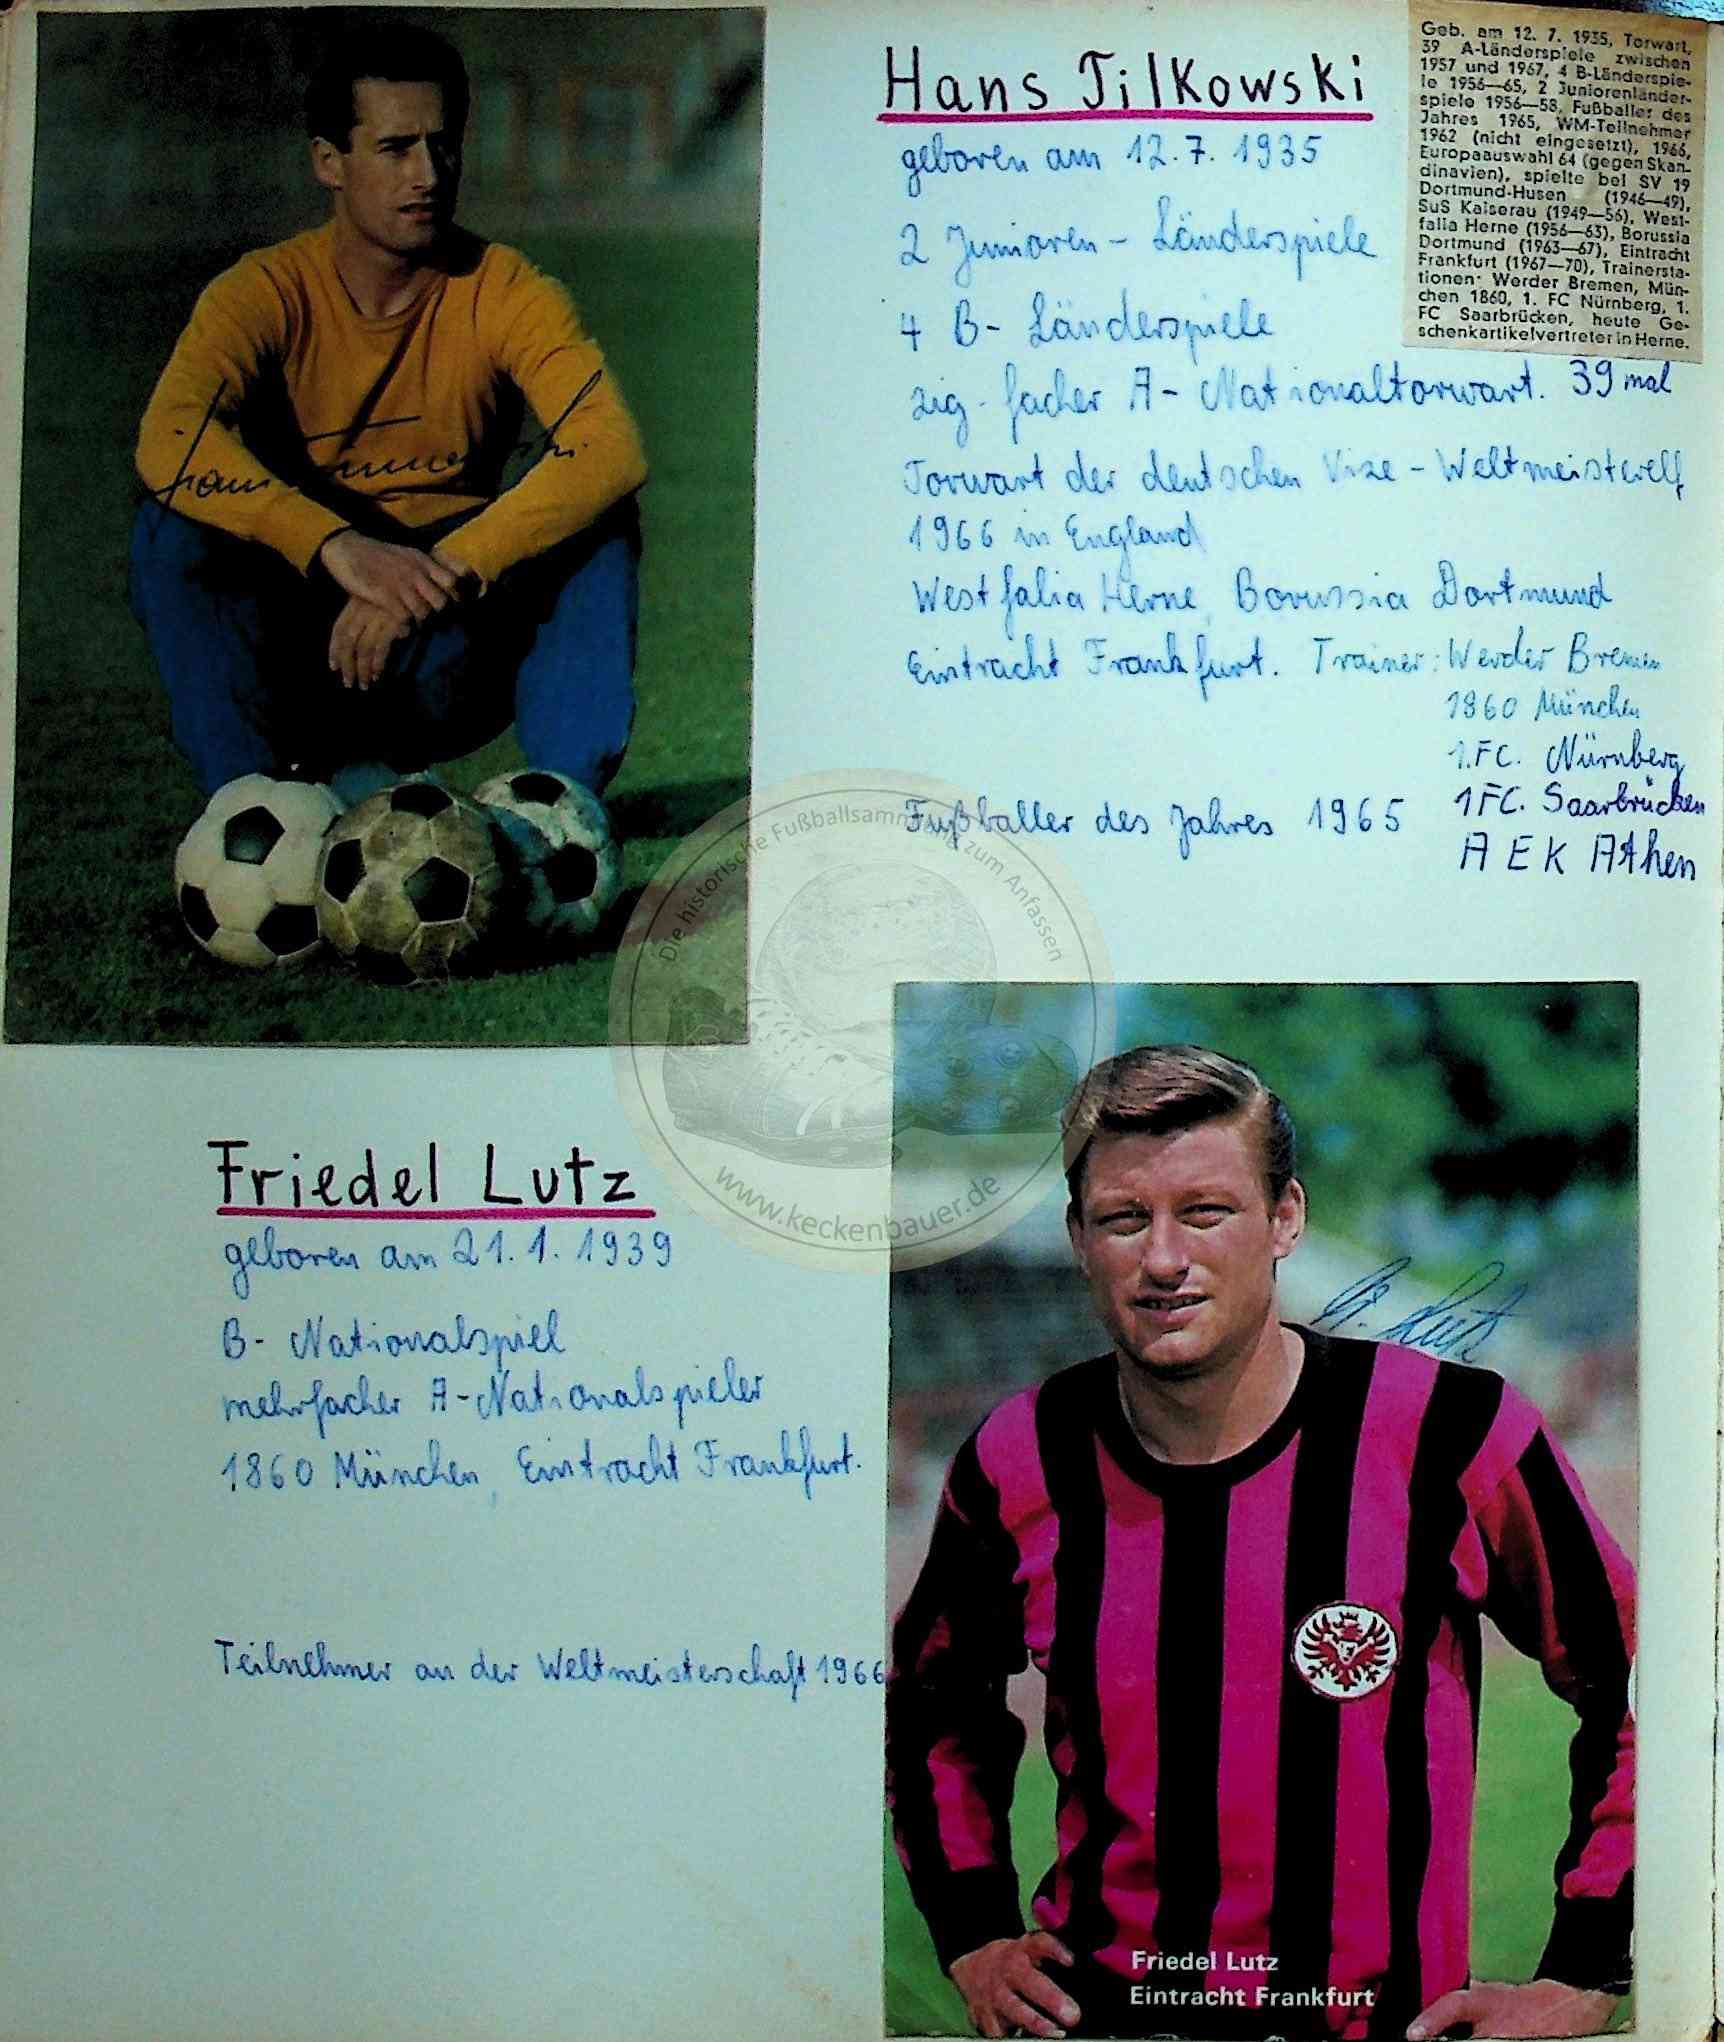 Hans Tilkowski
geboren am 12.7.1935
2 Junioren-Länderspiele
4 B-Länderspiele
zig-facher A-Nationaltorwart. 39 mal
Torwart der deutschen Vize-Weltmeisterelf
1966 in England
Westfalia Herne, Borussia Dortmund
Eintracht Frankfurt. Trainer: Werder Bremen
1860 München
1.FC. Nürnberg
1FC. Saarbrücken
AEK Athen
Fußballer des Jahres 1965
Geb. am 12. 7. 1935, Torwart,
39 A-Länderspiele zwischen
1957 und 1967, 4 B-Länderspie-
le 1956—65, 2 Juniorenländer-
spiele 1956—58, Fußballer des
Jahres 1965, WM-Teilnehmer
1962 (nicht eingesetzt), 1966,
Europaauswahl 64 (gegen Skan-
dinavien), spielte bei SV 19
Dortmund-Husen (1946—49),
SuS Kaiserau (1949—56), West-
falia Herne (1956—63), Borussia
Dortmund (1963—67), Eintracht
Frankfurt (1967—70), Trainersta-
tionen: Werder Bremen, Mün-
chen 1860, 1. FC Nürnberg, 1.
FC Saarbrücken, heute Ge-
schenkartikelvertreter in Herne.
Die historische Fußballsammlung zum Anfassen
www.keckenbauer.de
Friedel Lutz
geboren am 21.1.1939
B-Nationalspiel
mehrfacher A-Nationalspieler
1860 München, Eintracht Frankfurt.
Teilnehmer an der Weltmeisterschaft 1966
Lutz
Friedel Lutz
Eintracht Frankfurt